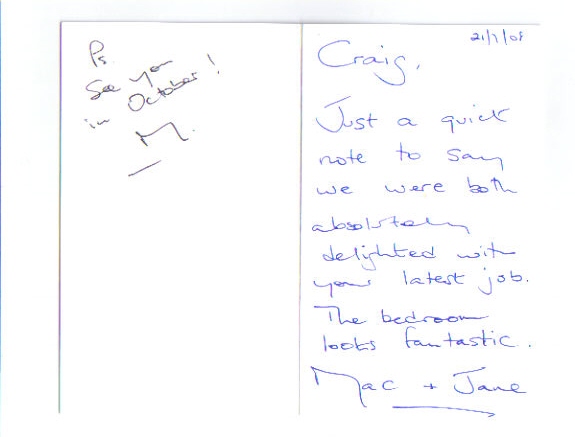 Ps.
See you
in October!
M.
21/7/08
Craig,
Just a quick
note to say
we were both
absolutely
delighted with
your latest job.
The bedroom
looks fantastic.
Mac + Jane